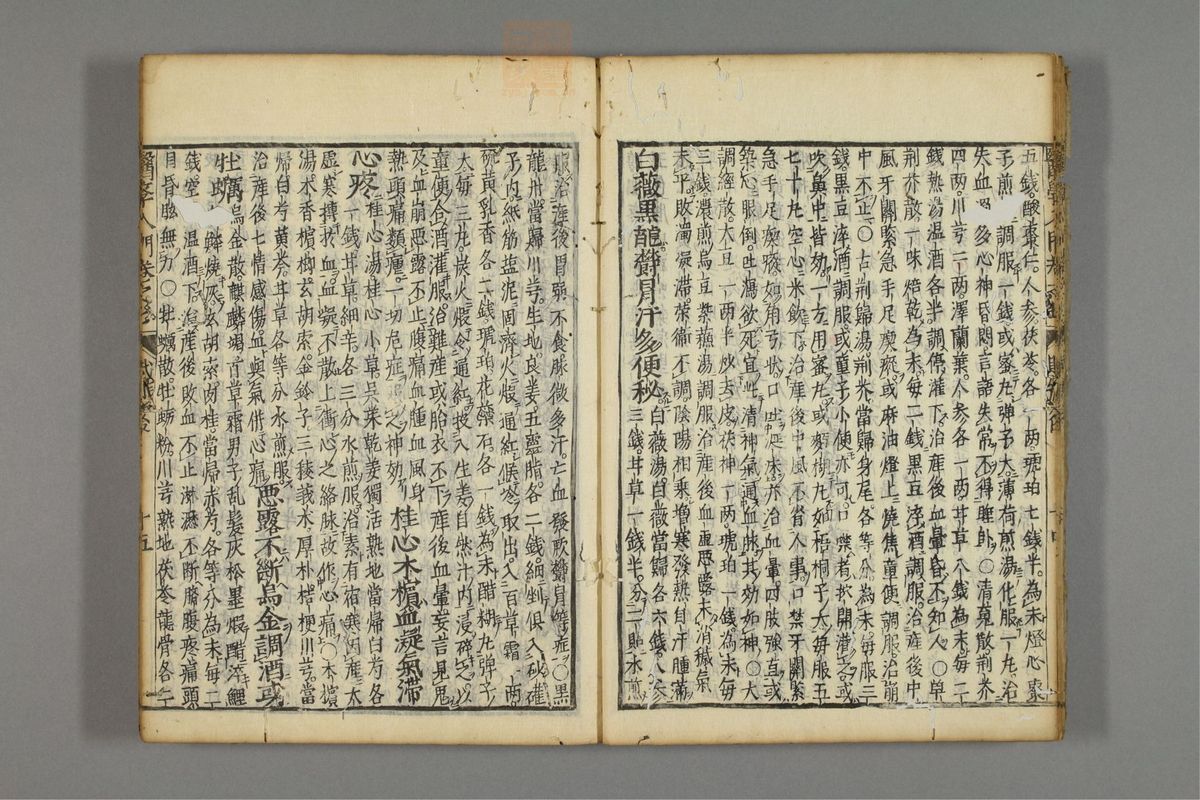 五錢酸棗仁人參茯苓各一兩琥珀七錢半為末燈心棗
子煎湯調服一錢或蜜丸彈子大薄荷煎湯化服一丸治
失血多心神昏悶言語失常不得睡卧○清魂散荊芥
四兩川芎二兩澤蘭葉人參各一兩甘草八錢為末每二
錢熱湯温酒各半調停灌下治產後血暈昏不知人○單
荊芥散一味焙乾為末每二錢黑豆淬酒調服治產後中
風牙關緊急手足瘈瘲或麻油燈上燒焦童便調服治崩
中不止○古荊歸湯荊芥當歸身尾各等分為末每服三
錢黑豆淬酒調服或童子小便亦可口噤者抉開灌之或
吹鼻中皆効一方用蜜丸或麪糊丸如梧桐子大每服五
七十丸空心米飲下治產後中風不省人事口禁牙關緊
急手足瘈瘲如角弓狀口吐涎沫亦治血暈四肢強直或
築心眼倒吐瀉欲死宜此清神氣通血脉其効如神○大
調經散大豆一兩半炒去皮茯神一兩琥珀一錢為末每
三錢濃煎烏豆紫蘇湯調服治產後血虛惡露未消穢氣
未平敗濁凝滯榮衛不調陰陽相乘增寒發熱自汗腫滿
白薇黑龍鬱冒汗多便秘白薇湯白薇當歸各六錢人參
三錢甘草一錢半分二貼水煎
服治產後胃弱不食脉微多汗亡血發厥鬱冒等症○黑
龍丹當歸川芎生地良姜五靈脂各二錢細剉俱入砂礶
子內紙筋盐泥固濟火煆通紅候冷取出入百草霜一兩
硫黃乳香各二錢琥珀花蘂石各一錢為末醋糊丸彈子
大每二三丸炭火煆令通紅投入生姜自然汁內浸碎之以
童便合酒灌服治難產或胎衣不下產後血暈妄言見鬼
及血崩惡露不止腹痛血腫血風身
熱頭痛類瘧一切危症之神妙桂心木檳血凝氣滞
心疼桂心湯桂心小草吳茱乾姜獨活熟地當歸白芍各
一錢甘草細辛各三分水煎服治素有宿寒因產太
虛寒搏於血血凝不散上衝心之絡脉故作心痛○木檳
湯木香檳榔玄胡索金鈴子三稜莪术厚朴桔梗川芎當
歸白芍黃芩甘草各等分水煎服惡露不斷烏金調酒或
治產後七情感傷血與氣併心痛
牡蠣烏金散麒麟竭百草霜男子乱髮灰松墨煆醋淬鯉
魚鱗燒灰玄胡索肉桂當歸赤芍各等分為末每二
錢空心温酒下治產後敗血不止淋瀝不断臍腹疼痛頭
目昏眩無力○牡蠣散牡蛎粉川芎熟地茯苓龍骨各二